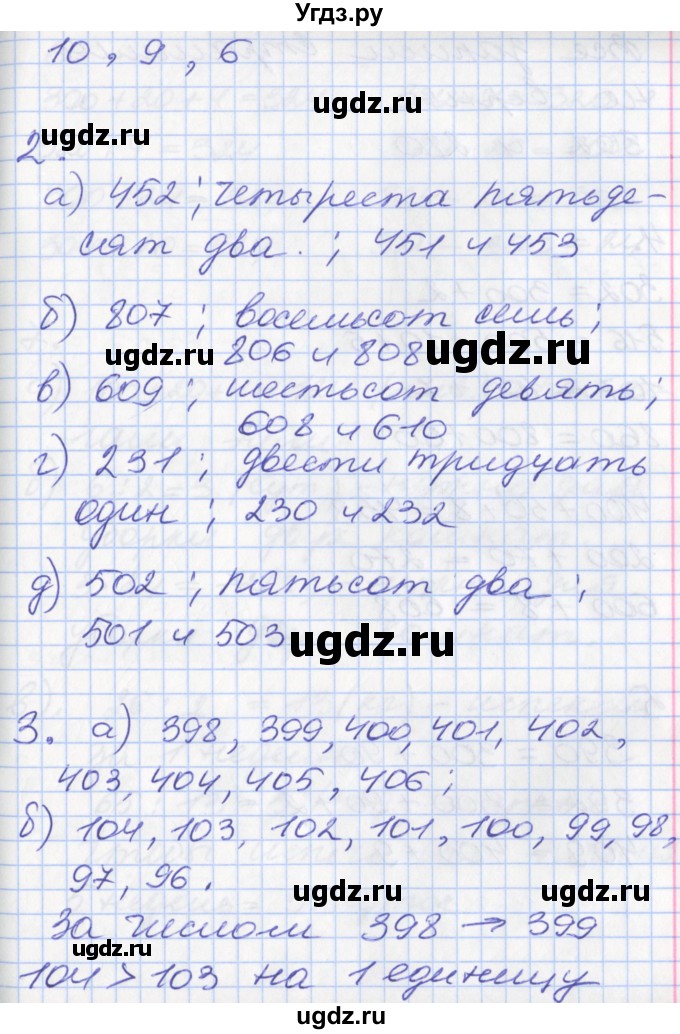 Угдз.ру
10, 9, 6
ugdz.ru
ugdz.ru
2.
а) 452; четыреста пятьде-
сят два.; 451 и 453
б) 807; восемьсот семь;
806 и 808
ugdz.ru
ugdz.ru
в) 609; шестьсот девять;
608 и 610
г) 231; двести тридцать
один; 230 и 232
д) 502; пятьсот два;
501 и 503
ugdz.ru
3. а) 398, 399, 400, 401, 402,
403, 404, 405, 406;
б) 104, 103, 102, 101, 100, 99, 98,
97, 96.
ugdz.ru
ugdz.ru
За числом 398 → 399
ugdz.ru
104 > 103 на 1 единицу
ugdz.ru